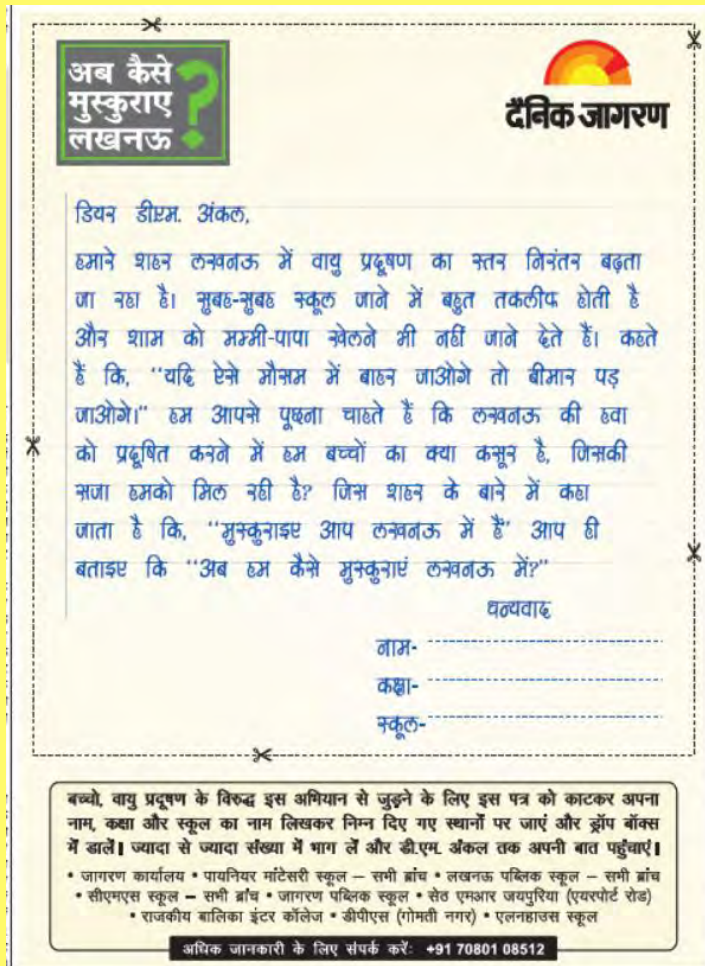 अब कैसे
मुस्कुराए
लखनऊ ?
दैनिक जागरण
डियर डीएम. अंकल,
हमारे शहर लखनऊ में वायु प्रदूषण का स्तर निरंतर बढ़ता
जा रहा है। सुबह-सुबह स्कूल जाने में बहुत तकलीफ होती है
और शाम को मम्मी-पापा खेलने भी नहीं जाने देते हैं। कहते
हैं कि, “यदि ऐसे मौसम में बाहर जाओगे तो बीमार पड़
जाओगे।” हम आपसे पूछना चाहते हैं कि लखनऊ की हवा
को प्रदूषित करने में हम बच्चों का क्या कसूर है, जिसकी
सजा हमको मिल रही है? जिस शहर के बारे में कहा
जाता है कि, “मुस्कुराइए आप लखनऊ में हैं” आप ही
बताइए कि “अब हम कैसे मुस्कुराएं लखनऊ में?”
धन्यवाद
नाम-
कक्षा-
स्कूल-
बच्चो, वायु प्रदूषण के विरुद्ध इस अभियान से जुड़ने के लिए इस पत्र को काटकर अपना
नाम, कक्षा और स्कूल का नाम लिखकर निम्न दिए गए स्थानों पर जाएं और ड्रॉप बॉक्स
में डालें। ज्यादा से ज्यादा संख्या में भाग लें और डी.एम. अंकल तक अपनी बात पहुंचाएं।
• जागरण कार्यालय • पायनियर मांटेसरी स्कूल – सभी ब्रांच • लखनऊ पब्लिक स्कूल – सभी ब्रांच
• सीएमएस स्कूल – सभी ब्रांच • जागरण पब्लिक स्कूल • सेठ एमआर जयपुरिया (एयरपोर्ट रोड)
• राजकीय बालिका इंटर कॉलेज • डीपीएस (गोमती नगर) • एलनहाउस स्कूल
अधिक जानकारी के लिए संपर्क करें: +91 70801 08512